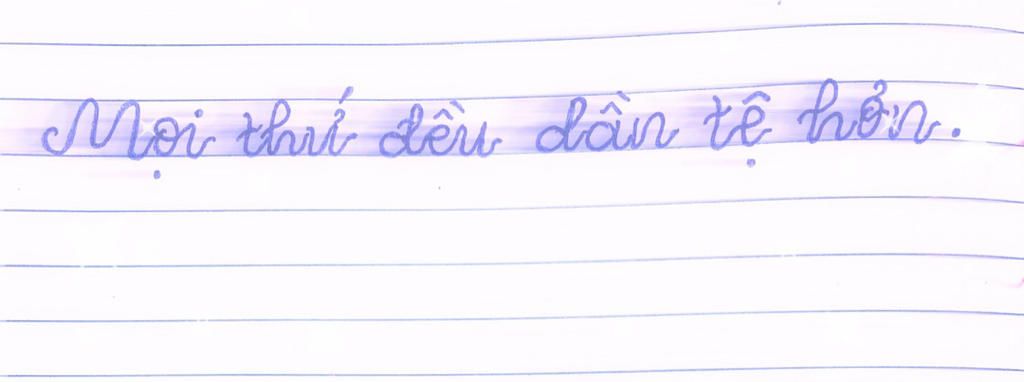 Mọi thứ đều dần tệ hơn.